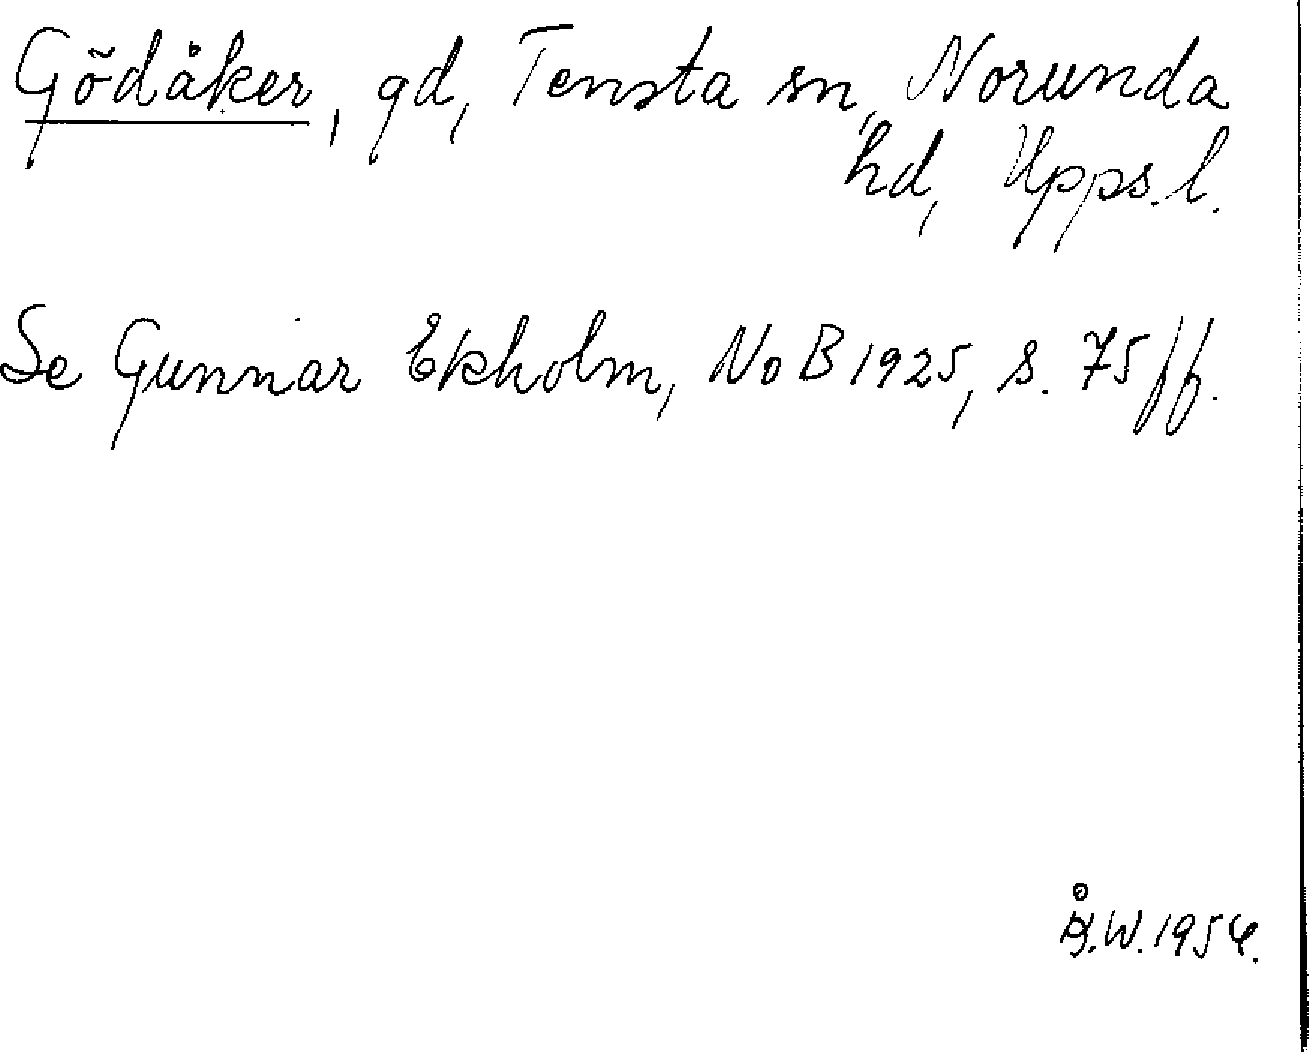 Gödåker, gd, Tensta sn, Norunda
hd, Upps. l.
Se Gunnar Ekholm, NoB 1925, s. 75 ff.
Å.W. 1954.